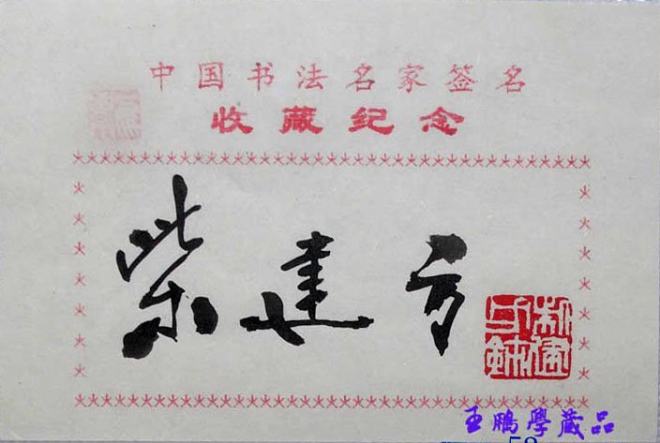 中国书法名家签名
收藏纪念
柴建方
王鹏學藏品